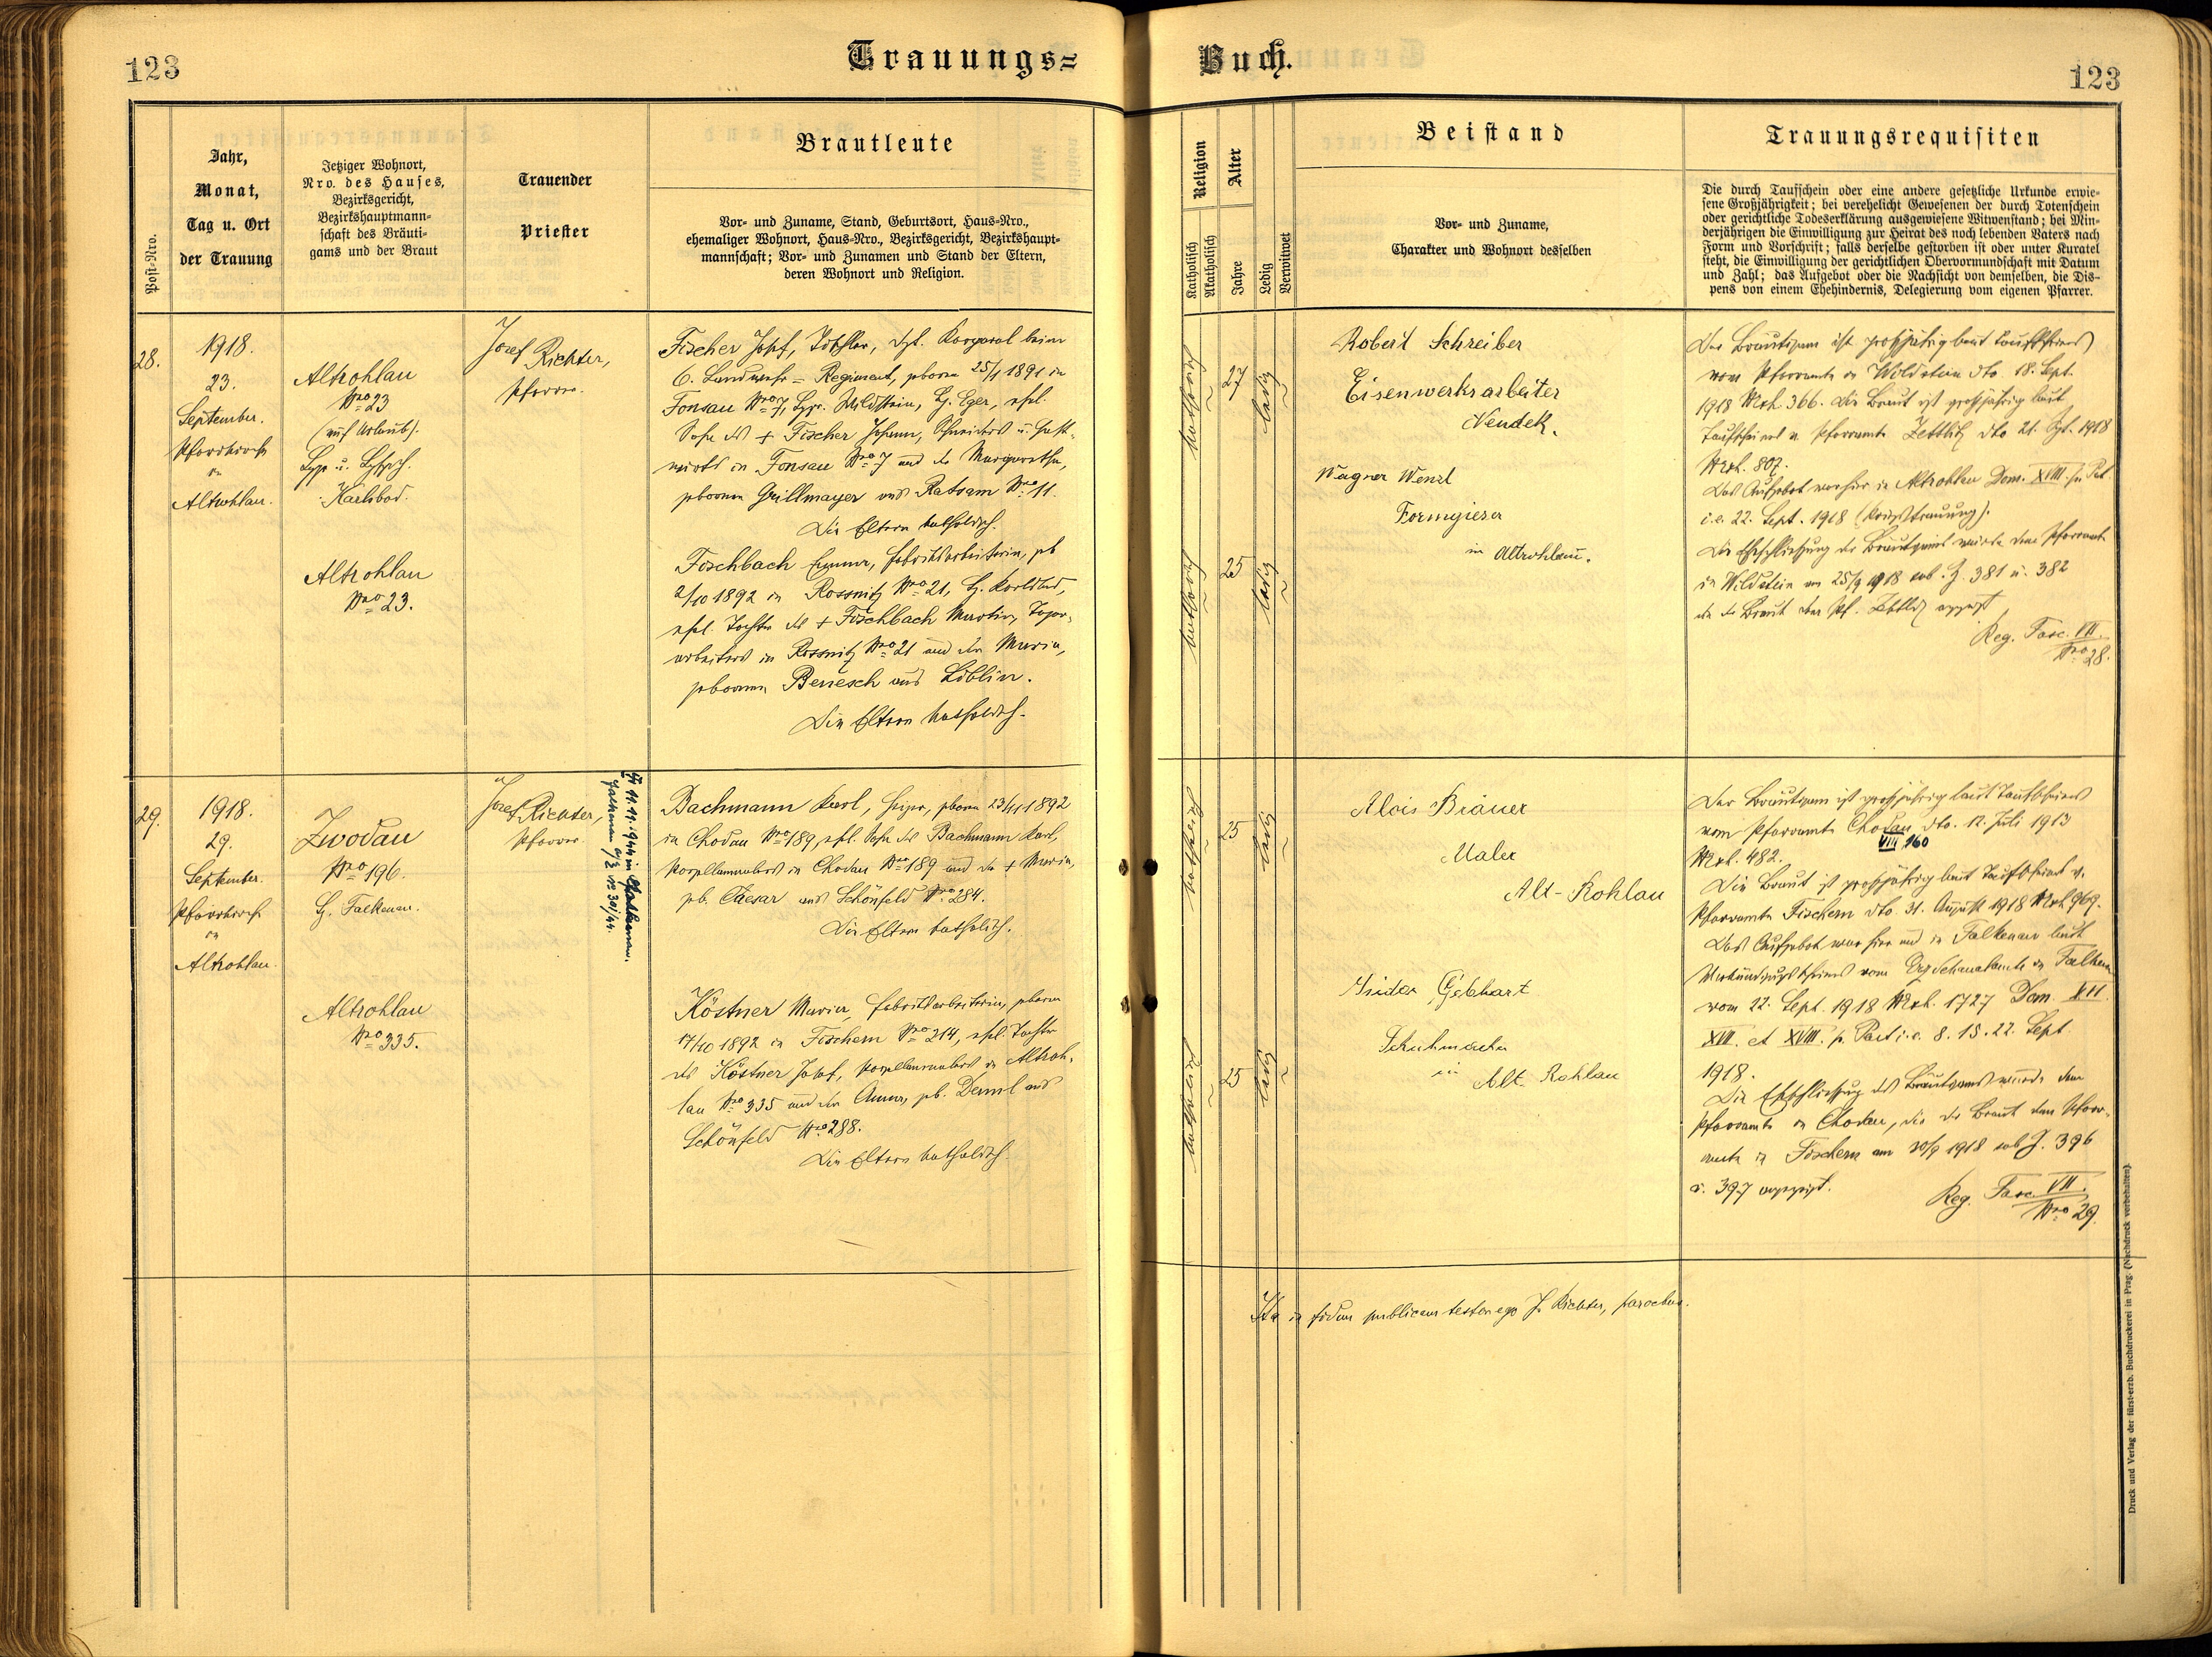 123
Trauungs=
Buch.
123
Post-Nro.
Jahr,
Monat,
Tag u. Ort
der Trauung
Jetziger Wohnort,
Nro. des Hauses,
Bezirksgericht,
Bezirkshauptmann-
schaft des Bräuti-
gams und der Braut
Trauender
Priester
Brautleute
Vor- und Zuname, Stand, Geburtsort, Haus-Nro.,
ehemaliger Wohnort, Haus-Nro., Bezirksgericht, Bezirkshaupt-
mannschaft; Vor- und Zunamen und Stand der Eltern,
deren Wohnort und Religion.
Religion
Katholisch
Akatholisch
Alter
Jahre
Ledig
Verwitwet
Beistand
Vor- und Zuname,
Charakter und Wohnort desselben
Trauungsrequisiten
Die durch Taufschein oder eine andere gesetzliche Urkunde erwie-
sene Großjährigkeit; bei verehelicht Gewesenen der durch Totenschein
oder gerichtliche Todeserklärung ausgewiesene Witwenstand; bei Min-
derjährigen die Einwilligung zur Heirat des noch lebenden Vaters nach
Form und Vorschrift; falls derselbe gestorben ist oder unter Kuratel
steht, die Einwilligung der gerichtlichen Obervormundschaft mit Datum
und Zahl; das Aufgebot oder die Nachsicht von demselben, die Dis-
pens von einem Ehehindernis, Delegierung vom eigenen Pfarrer.
28.
1918.
23.
September.
Pfarrkirche
in
Altrohlau.
Altrohlau
Nro 23
(auf Urlaub).
Karlsbad.
Altrohlau
Nro 23.
Josef Richter,
Pfarrer.
Fischer Josef, Tischler, dzt. Korporal beim
6. Landwehr=Regiment, geboren 25/1 1891 in
Fonsau Nro 7, Bzg. Wildstein, B. Eger, ehel.
Sohn des + Fischer Johann, Schneiders u. Gast-
wirts in Fonsau Nro 7 und der Margaretha,
geborenen Grillmayer aus Ratsam Nro 11.
Die Eltern katholisch.
Fischbach Emma, Fabriksarbeiterin, geb.
2/10 1892 in Rossnitz Nro 21, B. Karlsbad,
ehel. Tochter des + Fischbach Martin,
arbeiters in Rossnitz Nro 21 und der Maria,
geborenen Benesch aus Liblin.
Die Eltern katholisch.
katholisch
27
ledig
katholisch
25
ledig
Robert Schreiber
Eisenwerksarbeiter
Neudek.
Wagner Wenzl
Formgieser
in Altrohlau.
Der Bräutigam ist großjährig laut Taufscheines
vom Pfarramte in Wildstein dto. 18. Sept.
1918 Mrk. 366. Die Braut ist großjährig laut
Taufschein v. Pfarramte Zettlitz dto 21. Spt. 1918
Mrk. 807.
Das Aufgebot war hier in Altrohlau Dom. XVIII. p. Pet.
i.e. 22. Sept. 1918 (Kriegstrauung).
Die Eheschließung des Bräutigams wurde dem Pfarramte
in Wildstein am 25/9 1918 sub. Z. 381 u. 382
die der Braut dem Pf. Zettlitz angezeigt
Reg. Fasc. VII.
Nro 28.
29.
1918.
29.
September.
Pfarrkirche
in
Altrohlau.
Zwodau
Nro 196.
B. Falkenau.
Altrohlau
Nro 335.
Josef Richter,
Pfarrer.
Falkenau a/E No 30/44.
Bachmann Karl, Heizer, geboren 23/11 1892
in Chodau Nro 189, ehel. Sohn des Bachmann Karl,
Porzellanmalers in Chodau Nro 189 und der + Maria,
geb. Cäesar aus Schönfeld Nro 284.
Die Eltern katholisch.
Köstner Maria, Fabriksarbeiterin, geboren
17/10 1892 in Fischern Nro 214, ehel. Tochter
des Köstner Josef, Porzellanmalers in Altroh-
lau Nro 335 und der Anna, geb. Deml aus
Schönfeld Nro 288.
Die Eltern katholisch.
katholisch
25
ledig
katholisch
25
ledig
Alois Bräuer
Maler
Alt-Rohlau
Isidor Gebhart
Schuhmacher
in
Alt Rohlau
Der Bräutigam ist großjährig laut Taufscheines
vom Pfarramte Chodau dto. 12. Juli 1913
VIII 160
Mrk. 482.
Die Braut ist großjährig laut Taufschein v.
Pfarramte Fischern dto. 31. August 1918 Mrk 969.
Das Aufgebot war hier und in Falkenau laut
Verkündigungsscheines vom Erzdechanatamte in Falkenau
vom 22. Sept. 1918 Mrk. 1727 Dom. XVI.
XVII. et XVIII. p. Pent. i.e. 8. 15. 22. Sept.
1918.
Die Eheschließung des Bräutigams wurde dem
Pfarramte in Chodau, die der Braut dem Pfarr-
amte in Fischern am 30/9 1918 sub Z. 396
u. 397 angezeigt.
Reg. Fasc. VII.
Nro 29.
Ita in fidem publicam testor ego J. Richter, parochus.
Druck und Verlag der fürst-erzb. Buchdruckerei in Prag. (Nachdruck verbehalten).